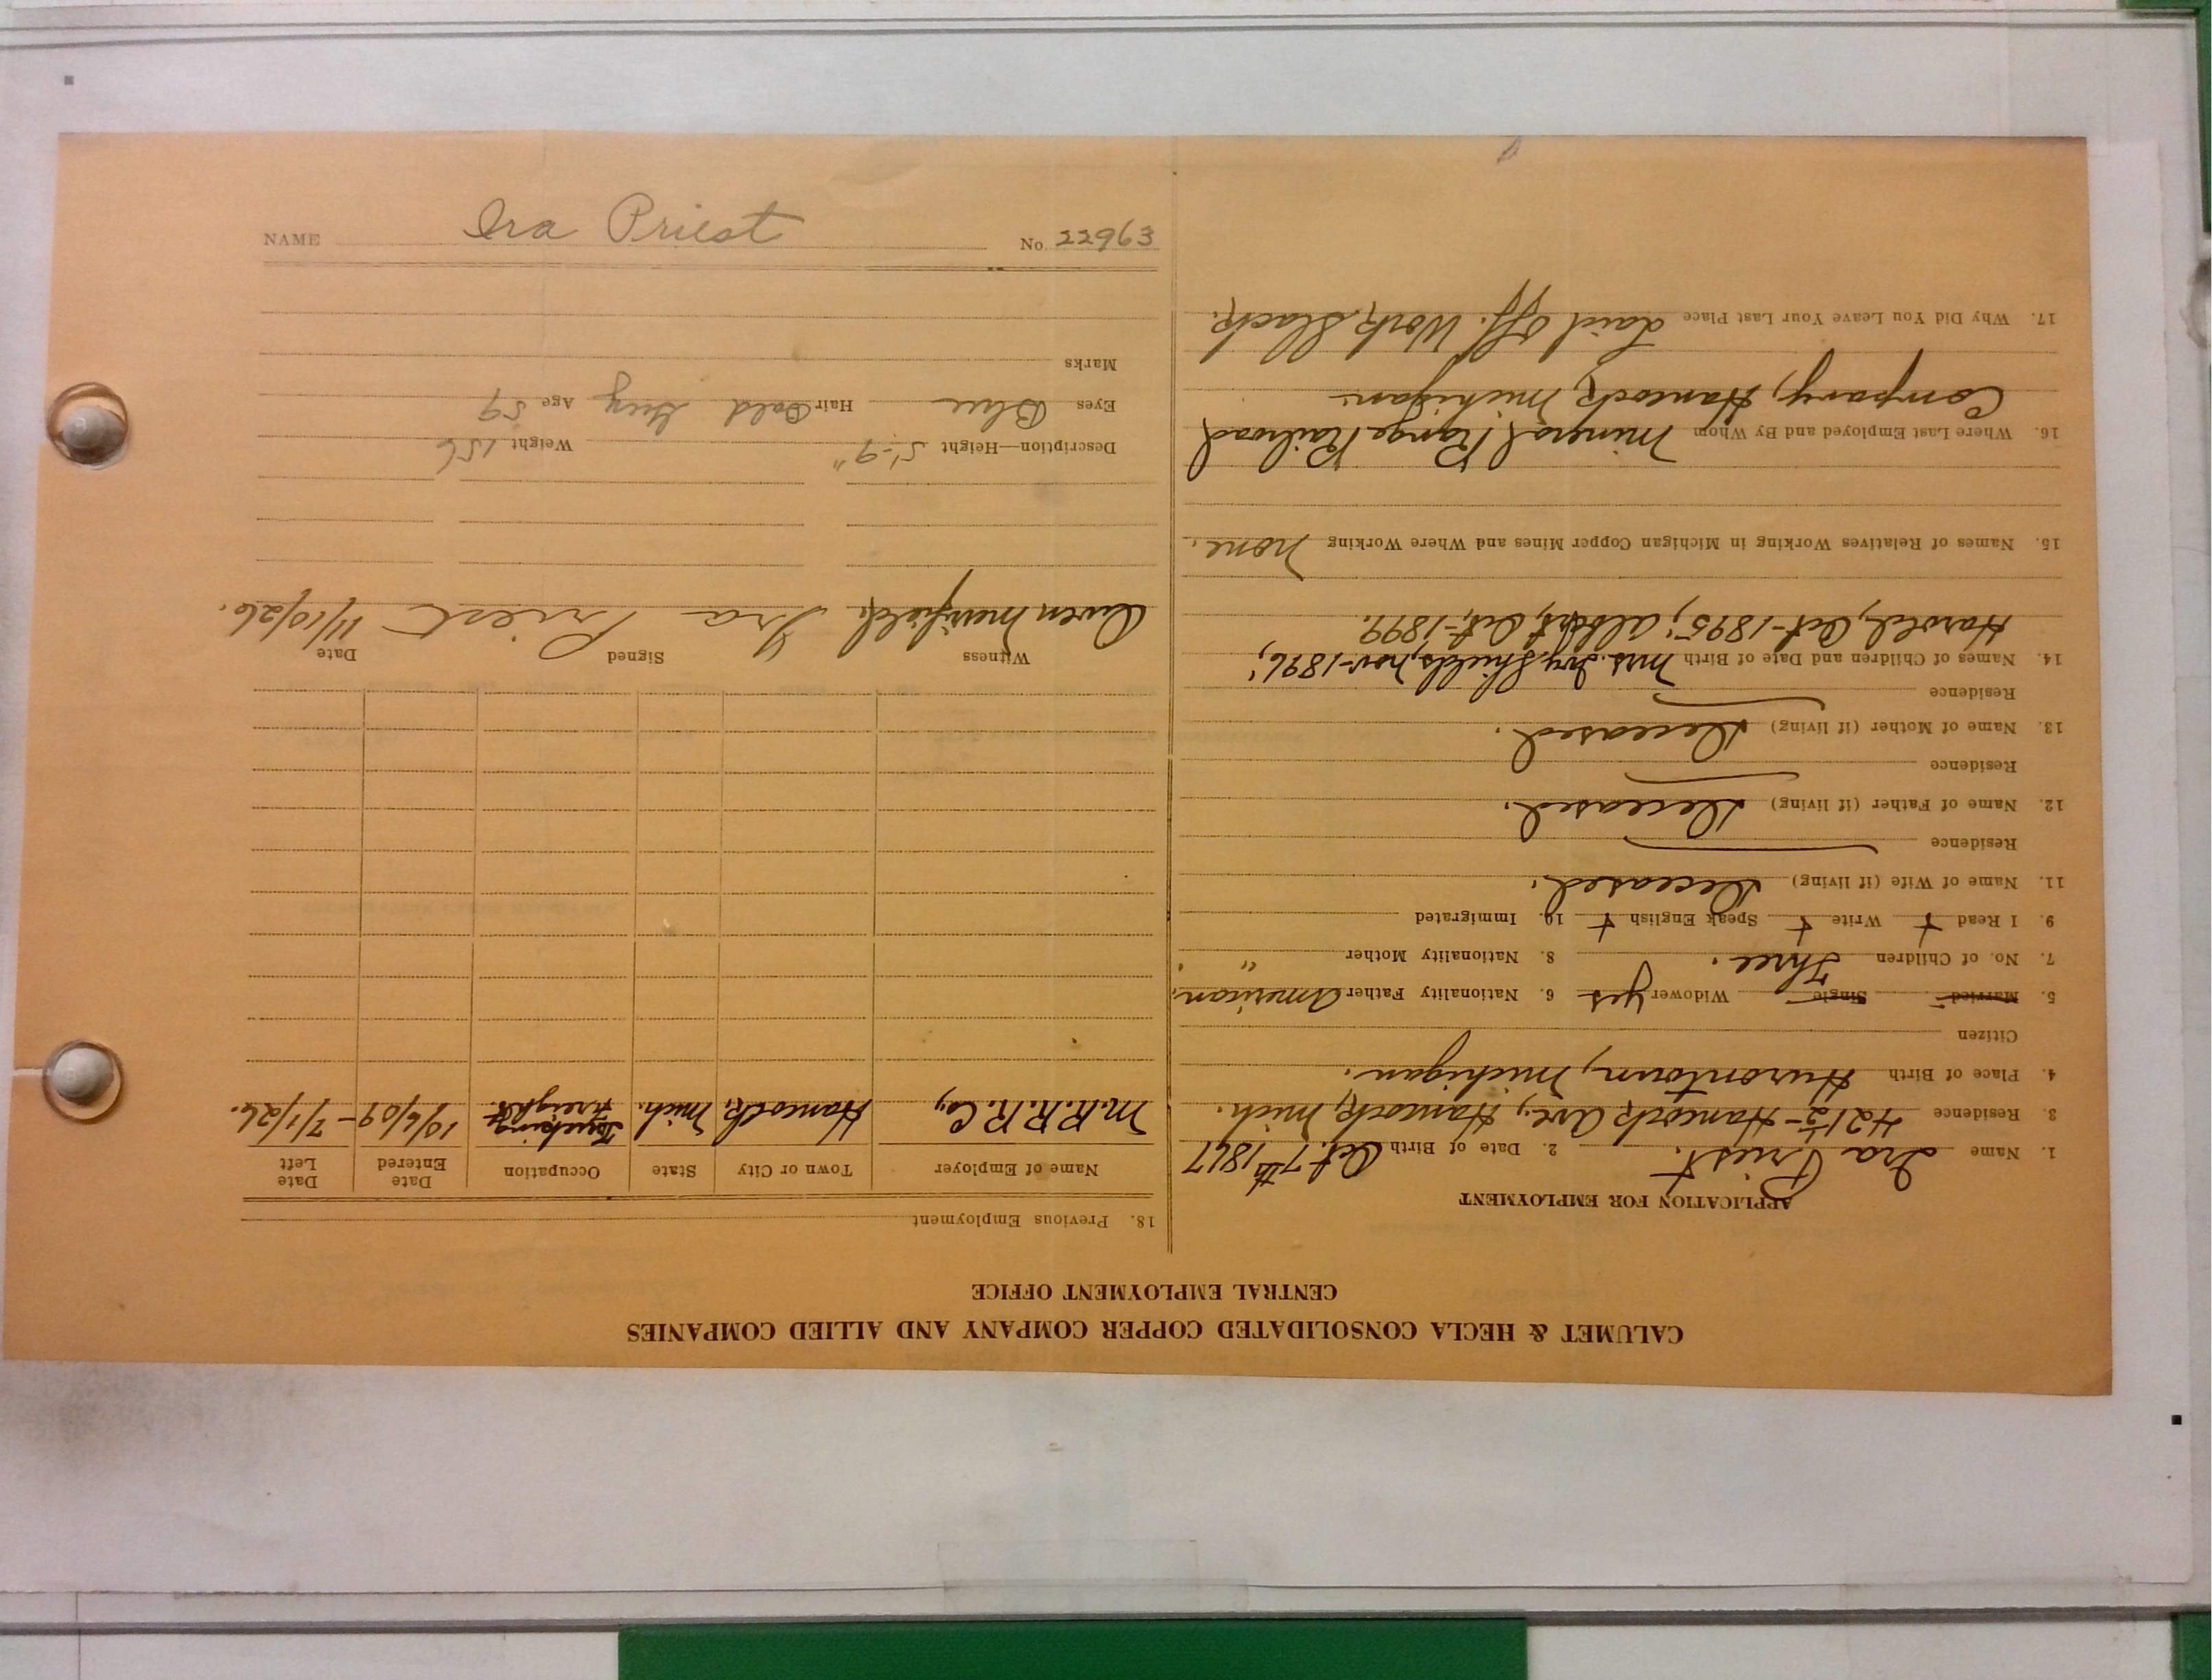 CALUMET & HECLA CONSOLIDATED COPPER COMPANY AND ALLIED COMPANIES
CENTRAL EMPLOYMENT OFFICE
APPLICATION FOR EMPLOYMENT
1. Name Ira Priest. 2. Date of Birth Oct. 7th 1867
3. Residence 421½ - Hancock Ave., Hancock, Mich.
4. Place of Birth Hurontown, Michigan.
Citizen
5. Married Single Widower yes 6. Nationality Father American.
7. No. of Children Three. 8. Nationality Mother " .
9. I Read + Write + Speak English + 10. Immigrated
11. Name of Wife (if living) Deceased.
Residence
12. Name of Father (if living) Deceased.
Residence
13. Name of Mother (if living) Deceased.
Residence
14. Names of Children and Date of Birth Mrs. Ivy Shields, Nov-1896;
Harold, Oct-1895; Albert, Oct,-1899.
15. Names of Relatives Working in Michigan Copper Mines and Where Working none.
16. Where Last Employed and By Whom Mineral Range Railroad
Company, Hancock, Michigan.
17. Why Did You Leave Your Last Place Laid off. Work Slack.
18. Previous Employment
Name of Employer Town or City State Occupation Date Entered Date Left
M.R.R.R. Co., Hancock, Mich. Trucking Freight 10/6/09 - 7/1/26.
Witness Signed Date
Owen Merrifield. Ira Priest 11/10/26.
Description—Height 5'-9" Weight 156
Eyes Blue Hair Bald Grey Age 59
Marks
NAME Ira Priest No. 22963